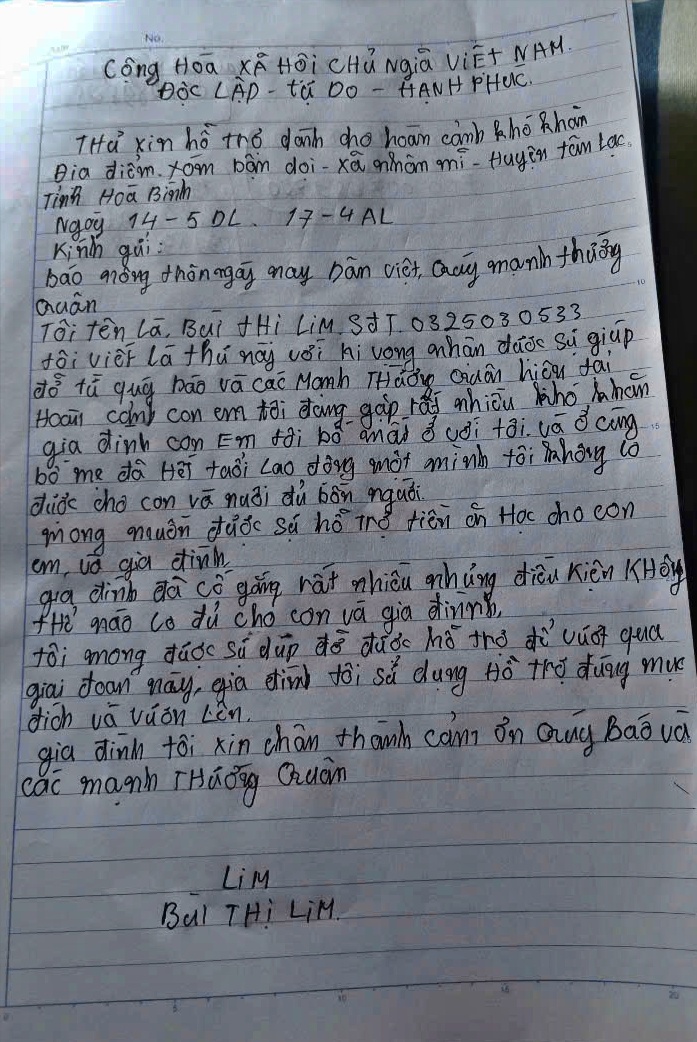 No.
Cộng HOÀ XÃ HỘI CHỦ NgiÃ VIỆT NAM.
ĐỘC LẬP - Tự DO - HẠNH PHÚC.
THư xin hỗ trợ dành cho hoàn cảnh khó khăn
Địa điểm. xóm bận doi - xã nhâm mĩ - Huyện tân Lạc.
Tỉnh HOÀ BÌNH
Ngày 14-5 DL. 17-4 AL
Kính gửi:
báo nông thôn ngày nay Dân việt, Quý mạnh thường
Quân
TÔI TÊN LÀ. BUI tHị LiM. SđT. 0325030533
tôi viết Lá thư này với hi vọng nhận được sự giúp
đỡ từ quý báo và các Mạnh THường Quân hiện tại
Hoàn cảnh con em tôi đang gặp rất nhiều khó khăn
gia đình con Em tôi bố mất ở với tôi và ở cùng
bố mẹ đã Hết tuổi Lao động một mình tôi không Lo
được cho con và nuôi đủ bốn người.
mong muốn được sự hỗ trợ tiền ăn Học cho con
em, và gia đình,
gia đình đã cố gắng rất nhiều nhưng điều kiện KHông
tHể nào Lo đủ cho con và gia đình,
tôi mong được sự dúp đỡ được hỗ trợ để vượt qua
giai đoạn này, gia đình tôi sử dụng Hỗ trợ đúng mục
đích và vươn Lên.
gia đình tôi xin chân thành cảm ơn Quý Báo và
các mạnh THường Quân
LiM
BÙI THị LiM.